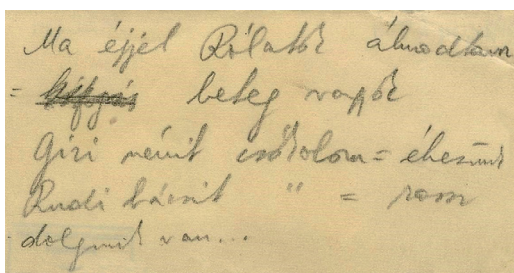 Ma éjjel Rólatok álmodtam
= kifogás beteg vagytok
Gizi nénit csókolom = éhezünk
Rudi bácsit " = rossz
dolgunk van...